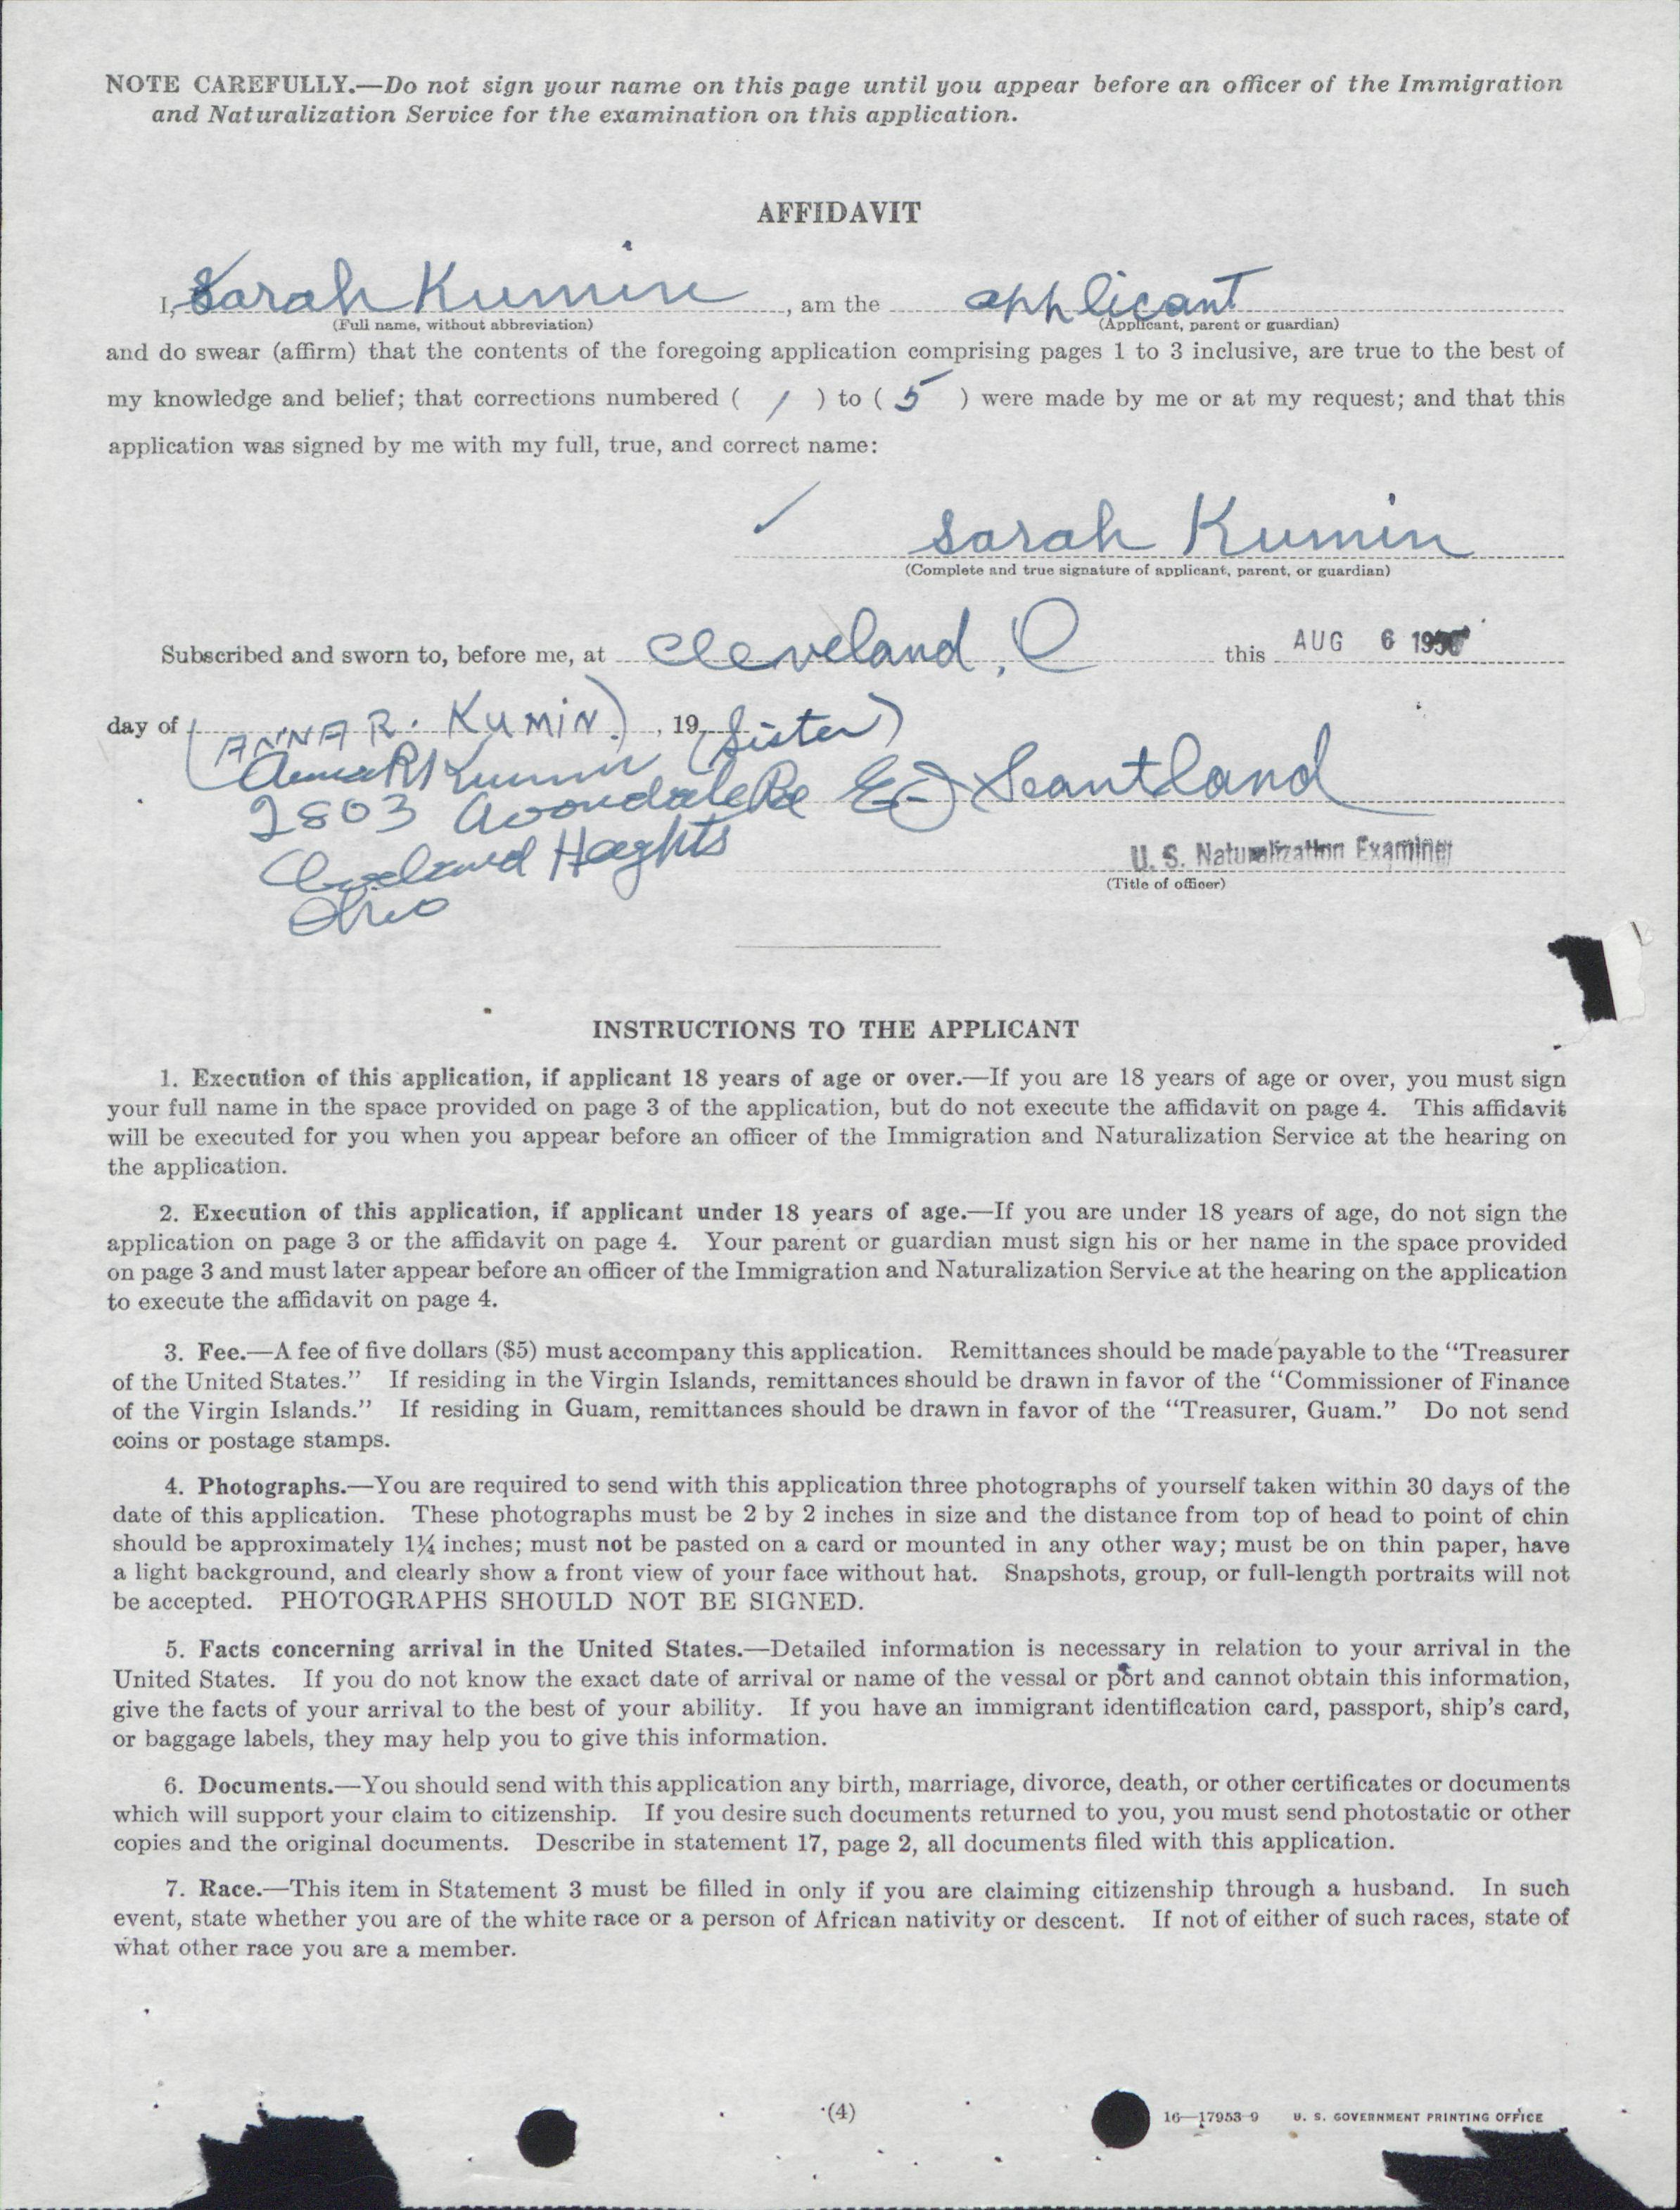 NOTE CAREFULLY.—Do not sign your name on this page until you appear before an officer of the Immigration
and Naturalization Service for the examination on this application.
AFFIDAVIT
I, Sarah Kumin, am the applicant
(Full name, without abbreviation) (Applicant, parent or guardian)
and do swear (affirm) that the contents of the foregoing application comprising pages 1 to 3 inclusive, are true to the best of
my knowledge and belief; that corrections numbered ( 1 ) to ( 5 ) were made by me or at my request; and that this
application was signed by me with my full, true, and correct name:
Sarah Kumin
(Complete and true signature of applicant, parent, or guardian)
Subscribed and sworn to, before me, at Cleveland, O this AUG 6
day of (ANNA R. KUMIN), 19 (Sister)
Anna R Kumin
2803 Avondale Rd E J Scantland
Cleveland Heights
U. S. Naturalization Examiner
(Title of officer)
Ohio
INSTRUCTIONS TO THE APPLICANT
1. Execution of this application, if applicant 18 years of age or over.—If you are 18 years of age or over, you must sign
your full name in the space provided on page 3 of the application, but do not execute the affidavit on page 4. This affidavit
will be executed for you when you appear before an officer of the Immigration and Naturalization Service at the hearing on
the application.
2. Execution of this application, if applicant under 18 years of age.—If you are under 18 years of age, do not sign the
application on page 3 or the affidavit on page 4. Your parent or guardian must sign his or her name in the space provided
on page 3 and must later appear before an officer of the Immigration and Naturalization Service at the hearing on the application
to execute the affidavit on page 4.
3. Fee.—A fee of five dollars ($5) must accompany this application. Remittances should be made payable to the “Treasurer
of the United States.” If residing in the Virgin Islands, remittances should be drawn in favor of the “Commissioner of Finance
of the Virgin Islands.” If residing in Guam, remittances should be drawn in favor of the “Treasurer, Guam.” Do not send
coins or postage stamps.
4. Photographs.—You are required to send with this application three photographs of yourself taken within 30 days of the
date of this application. These photographs must be 2 by 2 inches in size and the distance from top of head to point of chin
should be approximately 1¼ inches; must not be pasted on a card or mounted in any other way; must be on thin paper, have
a light background, and clearly show a front view of your face without hat. Snapshots, group, or full-length portraits will not
be accepted. PHOTOGRAPHS SHOULD NOT BE SIGNED.
5. Facts concerning arrival in the United States.—Detailed information is necessary in relation to your arrival in the
United States. If you do not know the exact date of arrival or name of the vessal or port and cannot obtain this information,
give the facts of your arrival to the best of your ability. If you have an immigrant identification card, passport, ship’s card,
or baggage labels, they may help you to give this information.
6. Documents.—You should send with this application any birth, marriage, divorce, death, or other certificates or documents
which will support your claim to citizenship. If you desire such documents returned to you, you must send photostatic or other
copies and the original documents. Describe in statement 17, page 2, all documents filed with this application.
7. Race.—This item in Statement 3 must be filled in only if you are claiming citizenship through a husband. In such
event, state whether you are of the white race or a person of African nativity or descent. If not of either of such races, state of
what other race you are a member.
(4) 16—17953-9 U. S. GOVERNMENT PRINTING OFFICE